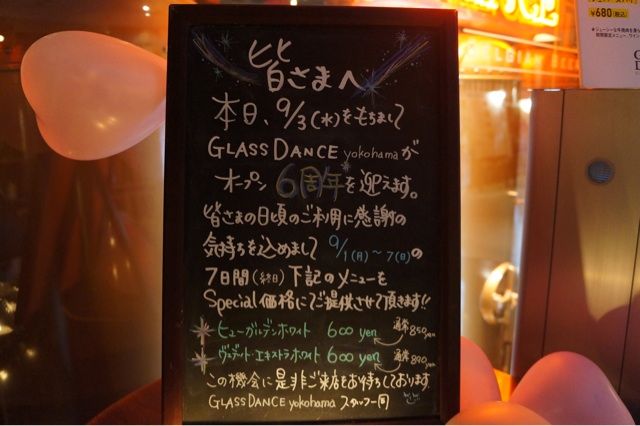 皆さまへ
本日、9/3(水)をもちまして
GLASS DANCE yokohamaが
オープン 6周年を迎えます。
皆さまの日頃のご利用に感謝の
気持ちを込めまして 9/1(月)〜7(日)の
7日間(終日)下記のメニューを
Special価格にてご提供させて頂きます!!
ヒューガルデンホワイト 600 yen 通常850yen
ヴェデット・エキストラホワイト 600 yen 通常890yen
この機会に是非ご来店をお待ちしております。
GLASS DANCE yokohama スタッフ一同
¥680(税込)